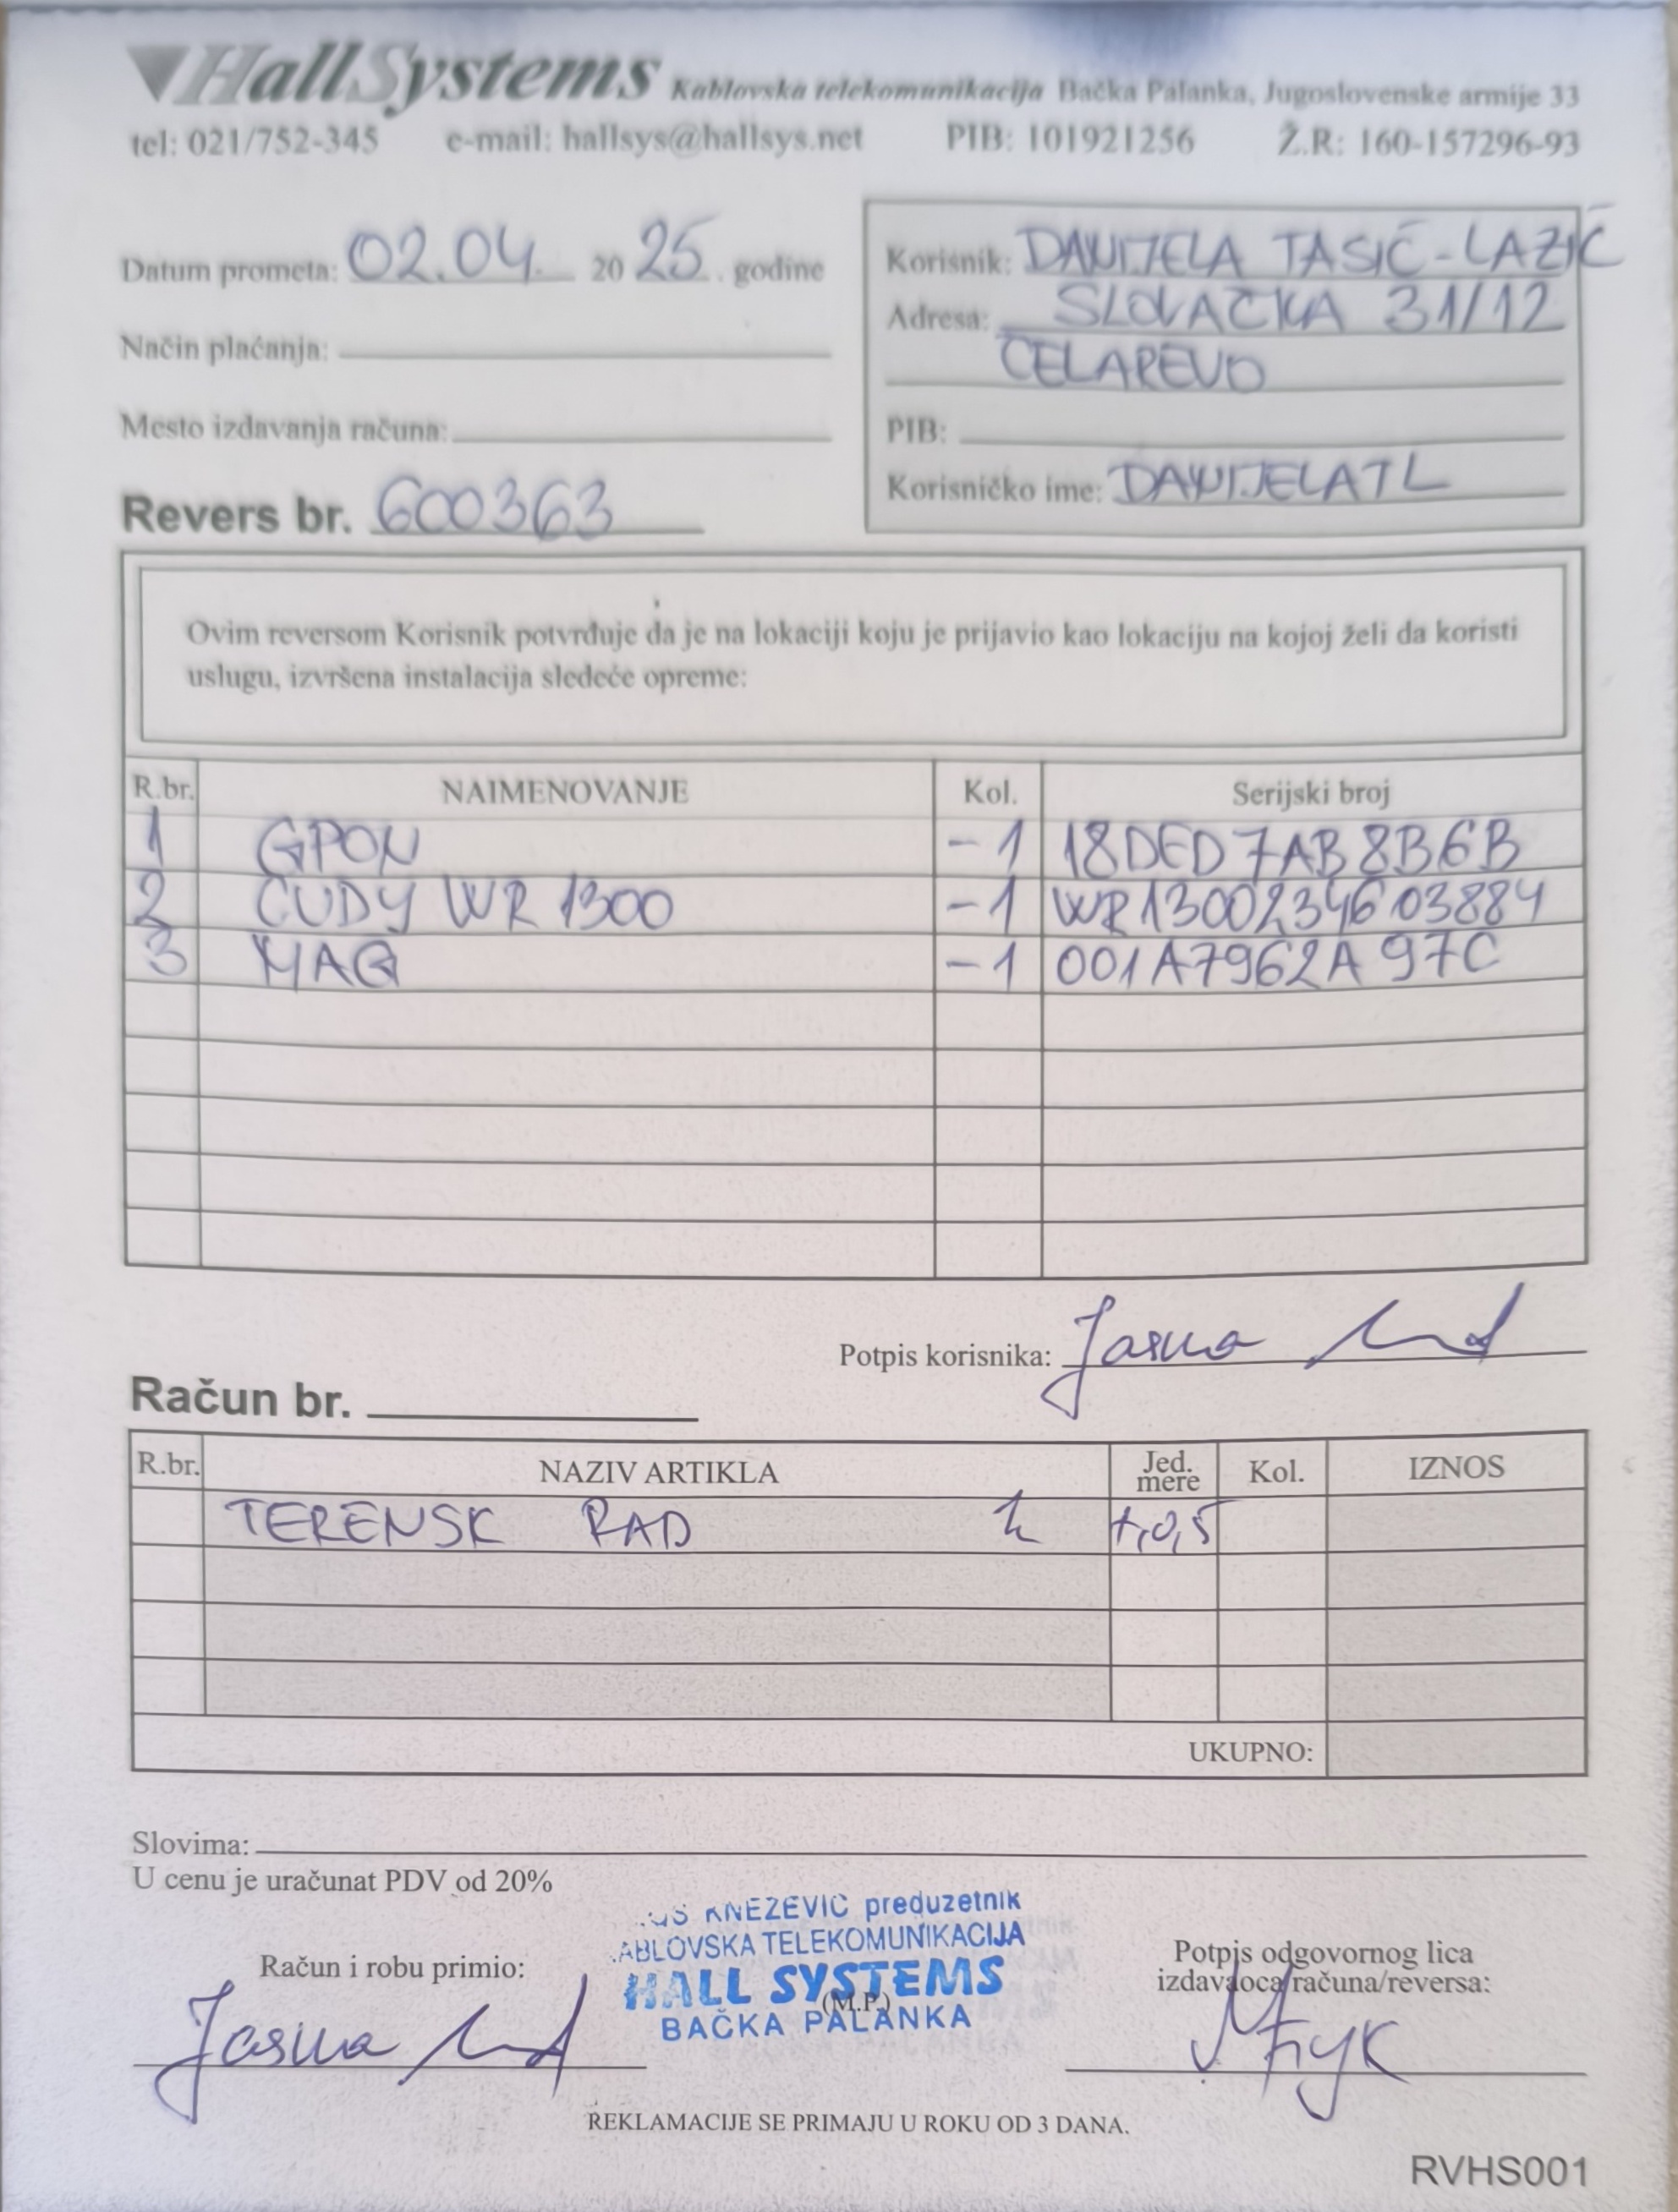 HallSystems Kablovska telekomunikacija Bačka Palanka, Jugoslovenske armije 33
tel: 021/752-345 e-mail: hallsys@hallsys.net PIB: 101921256 Ž.R: 160-157296-93
Datum prometa: 02.04. 2025. godine
Način plaćanja:
Mesto izdavanja računa:
Revers br. 600363
Korisnik: DANIJELA TASIĆ-LAZIĆ
Adresa: SLOVAČKA 31/12
ČELAREVO
PIB:
Korisničko ime: DANIJELATL
Ovim reversom Korisnik potvrđuje da je na lokaciji koju je prijavio kao lokaciju na kojoj želi da koristi
uslugu, izvršena instalacija sledeće opreme:
R.br. NAIMENOVANJE Kol. Serijski broj
1 GPON -1 18DED7AB8B6B
2 CUDY WR 1300 -1 WR1300234603884
3 MAG -1 001A7962A97C
Potpis korisnika: Jasna
Račun br.
R.br. NAZIV ARTIKLA Jed. mere Kol. IZNOS
TERENSK RAD h 0,5
UKUPNO:
Slovima:
U cenu je uračunat PDV od 20%
KNEŽEVIĆ preduzetnik
ABLOVSKA TELEKOMUNIKACIJA
HALL SYSTEMS
(M.P.)
BAČKA PALANKA
Račun i robu primio:
Jasna
Potpis odgovornog lica
izdavaoca računa/reversa:
REKLAMACIJE SE PRIMAJU U ROKU OD 3 DANA.
RVHS001